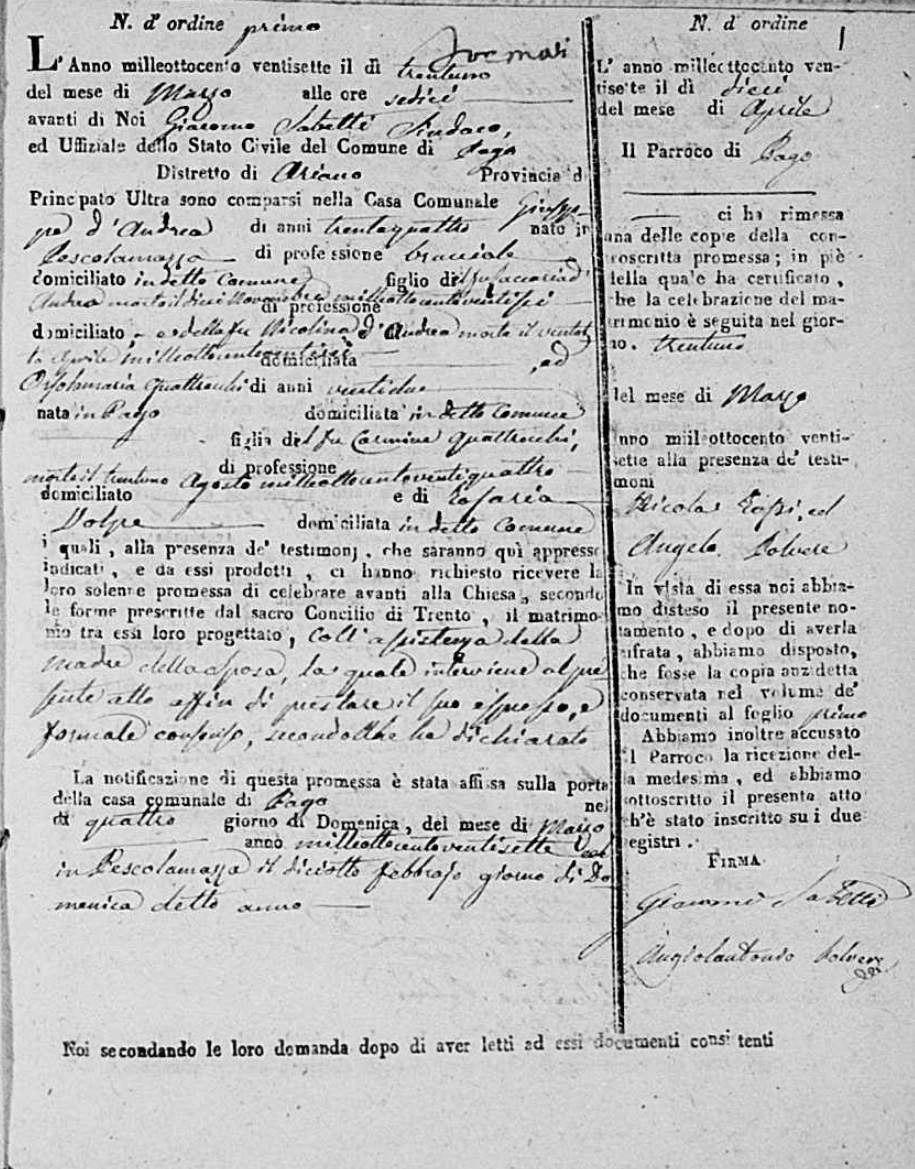 N. d' ordine primo
L' Anno milleottocento ventisette il dì trentuno
del mese di Marzo alle ore sedici
avanti di Noi Giacomo Sabetti Sindaco,
ed Uffiziale dello Stato Civile del Comune di Pago
Distretto di Ariano Provincia di
Principato Ultra sono comparsi nella Casa Comunale Giusep-
pe d'Andrea di anni trentaquattro nato in
Pescolamazza di professione bracciale
domiciliato in detto Comune figlio del fu
Andrea morto il dieci Novembre milleottocento
di professione
domiciliato e della fu Nicolina d'Andrea morta il
Aprile milleottocento domiciliata , ed
Orsolamaria Quattrocchi di anni ventidue
nata in Pago domiciliata in detto Comune
figlia del fu Carmine Quattrocchi,
morto il trentuno Agosto milleottocentoventiquattro
di professione
domiciliato e di Rosaria
Volpe domiciliata in detto Comune
i quali, alla presenza de' testimonj, che saranno quì appresso
indicati, e da essi prodotti, ci hanno richiesto ricevere la
loro solenne promessa di celebrare avanti alla Chiesa, secondo
le forme prescritte dal sacro Concilio di Trento, il matrimo-
nio tra essi loro progettato, coll'assistenza della
madre della sposa, la quale interviene al pre
sente atto affin di prestare il suo espresso, e
formale consenso, secondocché ha dichiarato
La notificazione di questa promessa è stata affissa sulla porta
della casa comunale di Pago nel
dì quattro giorno di Domenica, del mese di Marzo
anno milleottocentoventisette ed
in Pescolamazza il diciotto Febbrajo giorno di Do
menica detto anno
N. d' ordine 1
L' anno milleottocento ven-
tisette il dì dieci
del mese di Aprile
Il Parroco di Pago
ci ha rimessa
una delle copie della con-
troscritta promessa; in piè
della quale ha certificato,
che la celebrazione del ma-
trimonio è seguita nel gior-
no. trentuno
del mese di Marzo
anno mill'ottocento venti-
sette alla presenza de' testi-
moni
Nicola Rossi, ed
Angelo Polvere
In vista di essa noi abbia-
mo disteso il presente no-
tamento, e dopo di averla
cifrata, abbiamo disposto,
che fosse la copia anzidetta
conservata nel volume de'
documenti al foglio primo
Abbiamo inoltre accusato
il Parroco la ricezione del-
la medesima, ed abbiamo
sottoscritto il presente atto
ch'è stato inscritto su i due
registri.
FIRMA
Giacomo Sabetti
Angiolantonio Polvere
Noi secondando le loro domanda dopo di aver letti ad essi documenti consi tenti